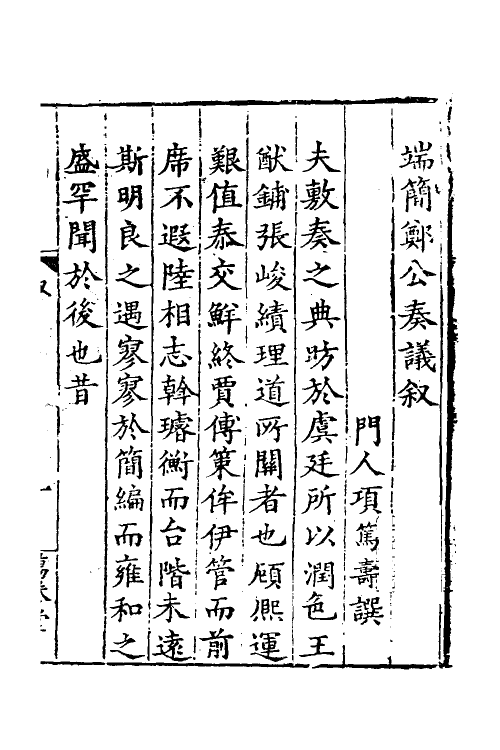 端簡鄭公奏議叙
門人項篤壽譔
夫敷奏之典昉於虞廷所以潤色王
猷鋪張峻績理道所關者也顧熙運
艱值泰交鮮終賈傅策侔伊管而前
席不遐陸相志斡璿衡而台階未遠
斯明良之遇寥寥於簡編而雍和之
盛罕聞於後也昔